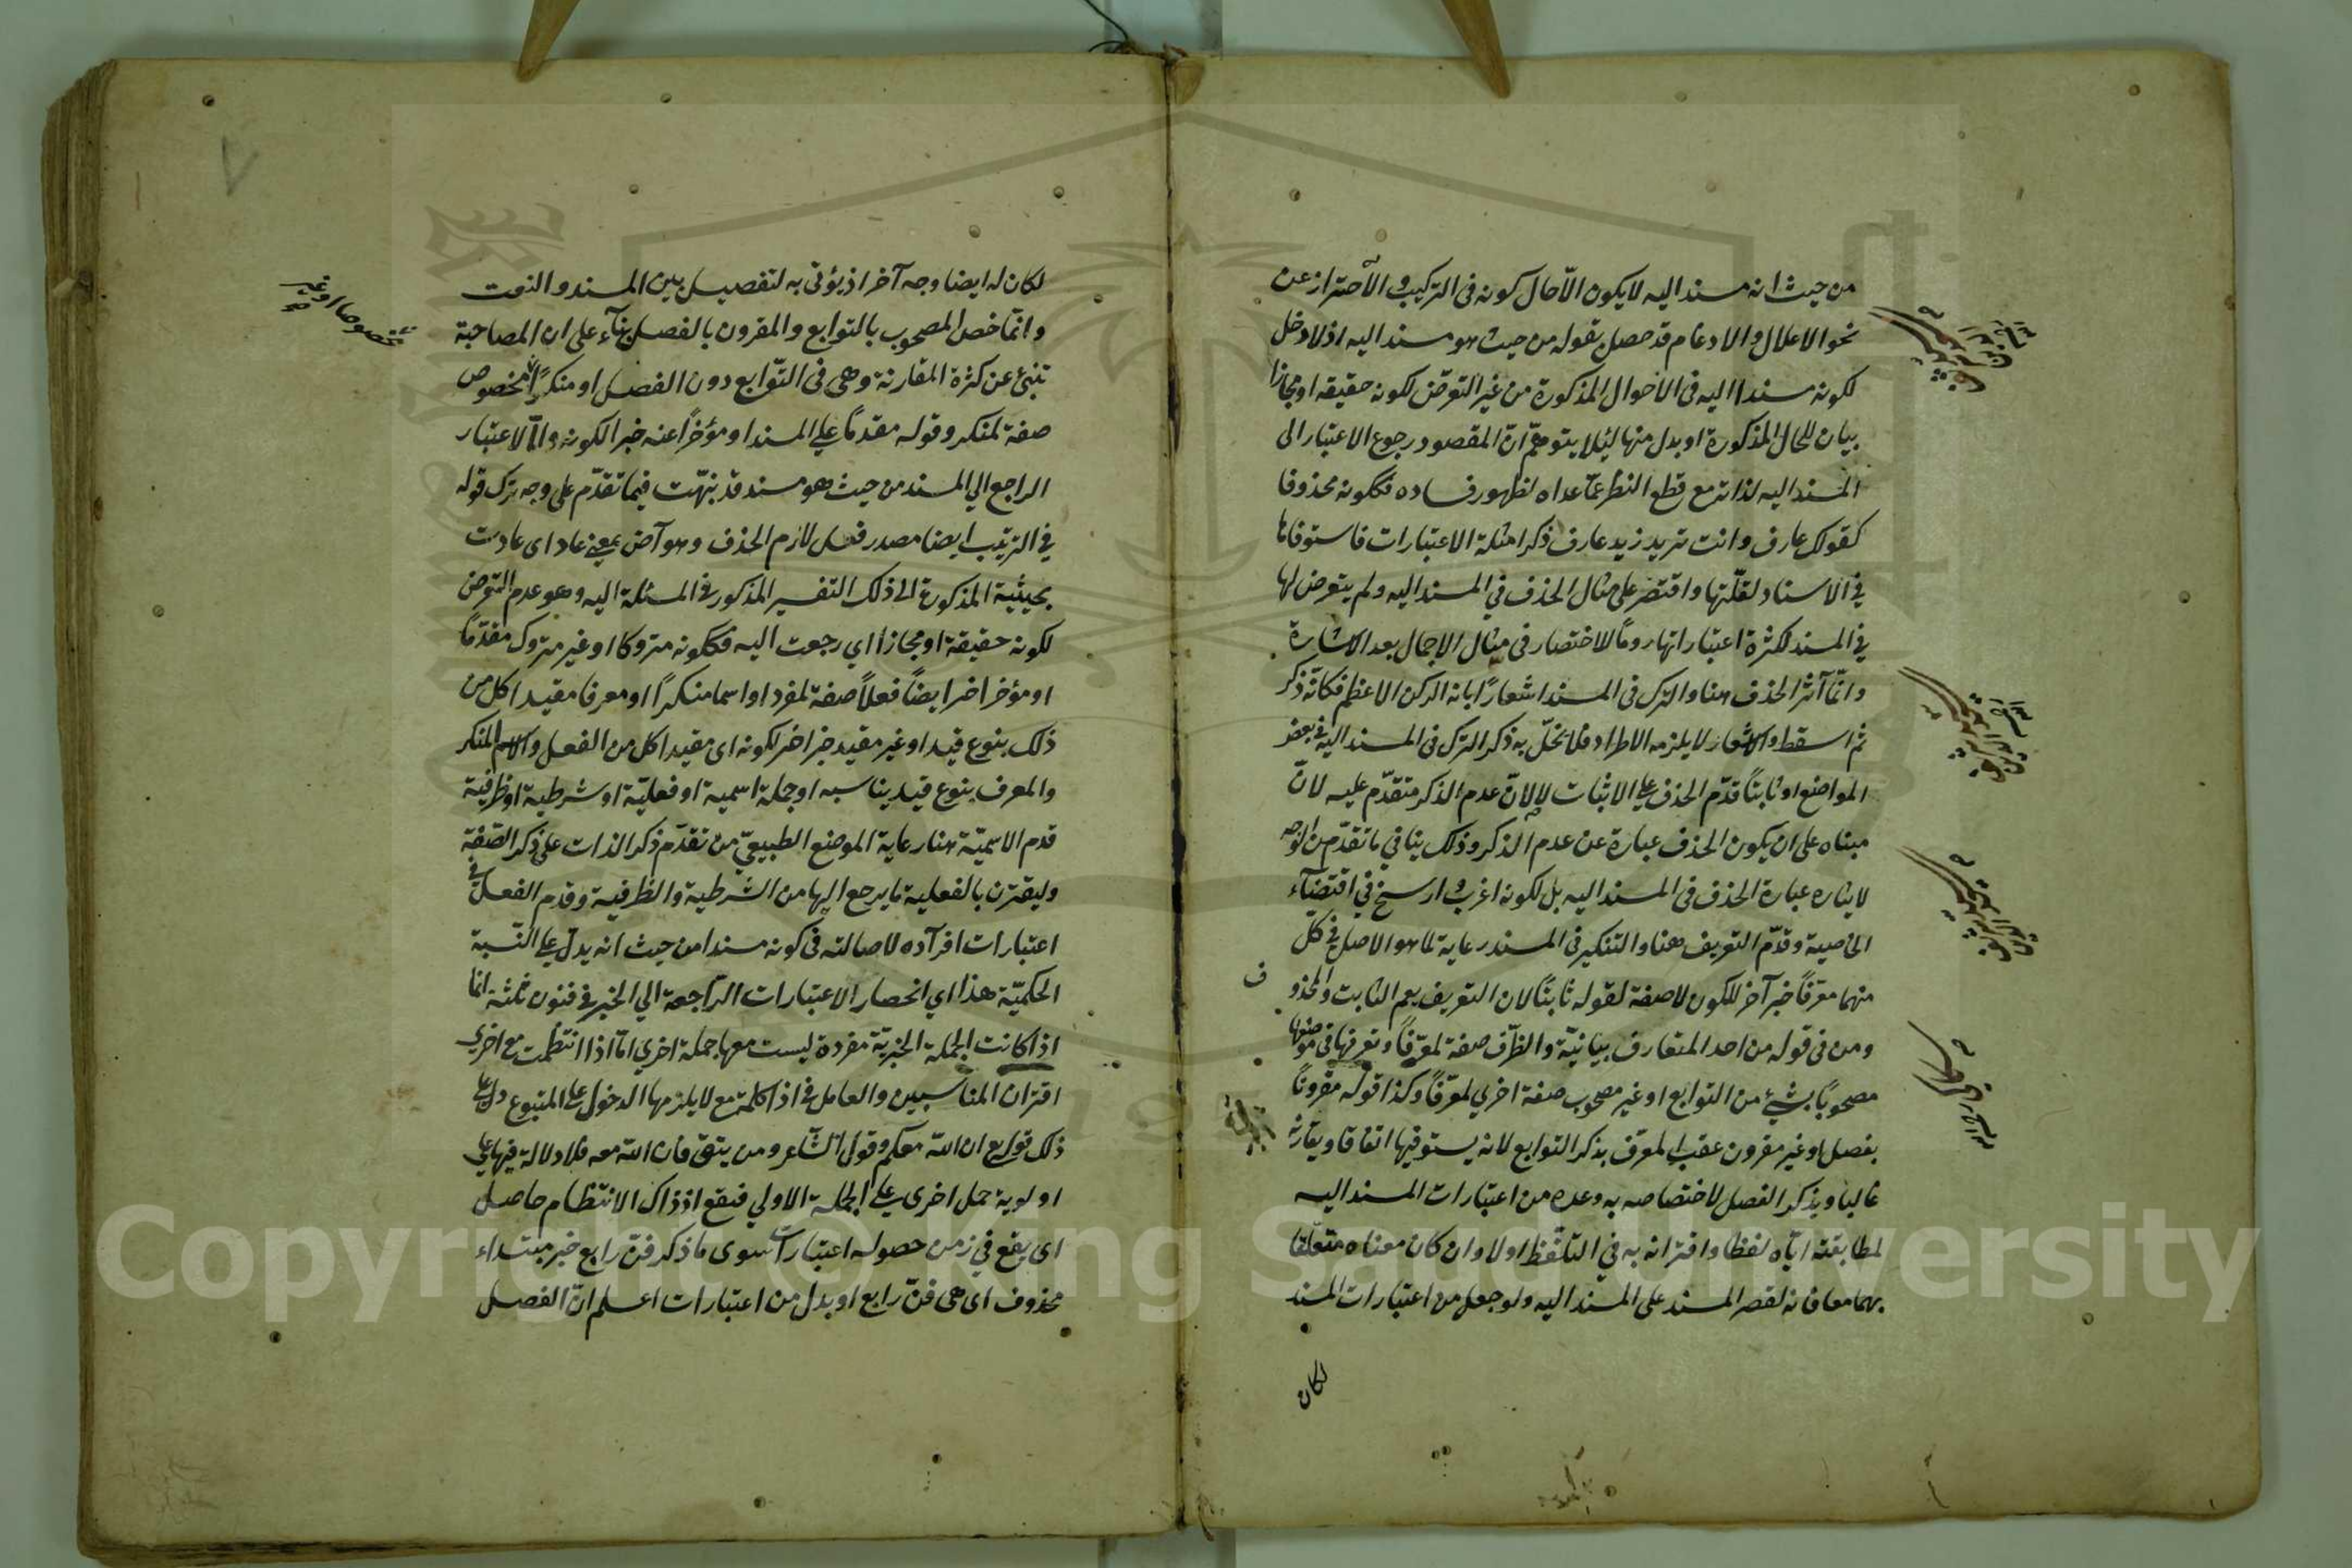 من حيث انه مسند اليه لا يكون الّا حال كونه في التركيب والاحتراز عن
نحو الاعلال والادغام قد حصل بقوله من حيث هو مسند اليه اذ لا دخل
لكونه مسندا اليه في الاحوال المذكورة من غير التعرّض لكونه حقيقة او مجازا
بيان للحال المذكورة او بدل منها لئلا يتوهّم انّ المقصود رجوع الاعتبار الى
المسند اليه لذاته مع قطع النظر عمّا عداه لظهور فساده فككونه محذوفا
كقولك عارف وانت تريد زيد عارف ذكر امثلة الاعتبارات فاستوفاها
في الاسناد لقلّتها واقتصر على مثال الحذف في المسند اليه ولم يتعرض لها
في المسند لكثرة اعتباراتها روما للاختصار في مثال الاجمال بعد الاشارة
وانّما آثر الحذف هنا والترك في المسند اشعارًا بانه الركن الاعظم فكانّه ذكر
ثم اسقط والاشعار لا يلزمه الاطراد فلا يخلّ به ذكر الترك في المسند اليه في بعض
المواضع او ثابتًا قدّم الحذف على الاثبات لا لانّ عدم الذكر متقدّم عليه لانّ
مبناه على ان يكون الحذف عبارة عن عدم الذكر وذلك ينافي ما تقدّم من الوجه
لايثاره عبارة الحذف في المسند اليه بل لكونه اغرب وارسخ في اقتضآء
الخاصية وقدّم التعريف هنا والتنكير في المسند رعاية لما هو الاصل في كل
منهما معرّفًا خبر آخر للكون لا صفة لقوله ثابتًا لان التعريف يعم الثابت والمحذوف
ومن في قوله من احد المتعارف بيانيّة والظرف صفة لمعرّفًا وتعرفها في موضعها
مصحوبًا بشئ من التوابع او غير مصحوب صفة اخرى لمعرّفًا وكذا قوله مقرونًا
بفصل او غير مقرون عقب المعرّف بذكر التوابع لانه يستوفيها اتفاقا ويقارنه
غالبا وبذكر الفصل لاختصاصه به وعده من اعتبارات المسند اليه
لمطابقته ايّاه لفظا واقترانه به في التلفّظ اولا وان كان معناه متعلّقا
بهما معا فانه لقصر المسند على المسند اليه ولو جعل من اعتبارات المسند
لكان
لكان له ايضا وجه آخر اذ يؤتى به لتفصيل بين المسند والنعت
وانّما خصّ المصحوب بالتوابع والمقرون بالفصل بنآء على ان المصاحبة
تنبئ عن كثرة المقارنة وهي في التّوابع دون الفصل او منكرًا مخصوص
مخصوصا او غير
صح
صفة لمنكر وقوله مقدمًا على المسند او مؤخرًا عنه خبرا لكونه وامّا الاعتبار
الراجع الى المسند من حيث هو مسند قد نبّهت فيما تقدّم على وجه ترك قوله
في التركيب ايضا مصدر فعل لازم الحذف وهو آض بمعنى عاد اى عادت
بحيثية المذكورة الى ذلك التفسير المذكور في المسئلة اليه وهو عدم التعرض
لكونه حقيقة او مجازا اي رجعت اليه فككونه متروكا او غير متروك مقدّمًا
او مؤخرا خبر ايضًا فعلاً صفة لمفردا او اسما منكرًا او معرفا مقيدا كل من
ذلك بنوع قيد او غير مقيد خبر اخر لكونه اى مقيدا كل من الفعل والاسم المنكر
والمعرف بنوع قيد يناسبه او جملة اسمية او فعليّة او شرطية او ظرفية
قدم الاسميّة هنا رعاية الموضع الطبيعيّ من تقدّم ذكر الذات على ذكر الصّفة
وليقترن بالفعلية ما يرجع اليها من الشرطية والظرفية وقدم الفعل في
اعتبارات افرآده لاصالته في كونه مسندا من حيث انه يدلّ على النّسبة
الحكميّة هذا اي انحصار الاعتبارات الرّاجعة الي الخبر في فنون ثلثة انما
اذا كانت الجملة الخبريّة مفردة ليست معها جملة اخري امّا اذا انتظمت مع اخري
اقتران المناسبين والعامل في اذا كلمة مع لا يلزمها الدخول على المتبوع دل على
ذلك قوله تع ان اللّه معكم وقول الشّاعر ومن يتق فان اللّه معه فلا دلالة فيها على
اولوية حمل اخرى على الجملة الاولي فيقع اذ ذاك الانتظام حاصل
اى يقع في زمن حصوله اعتبارات سوى ما ذكر فنّ رابع خبر مبتداء
محذوف اى هي فنّ رابع او بدل من اعتبارات اعلم انّ الفصل
Copyright © King Saud University